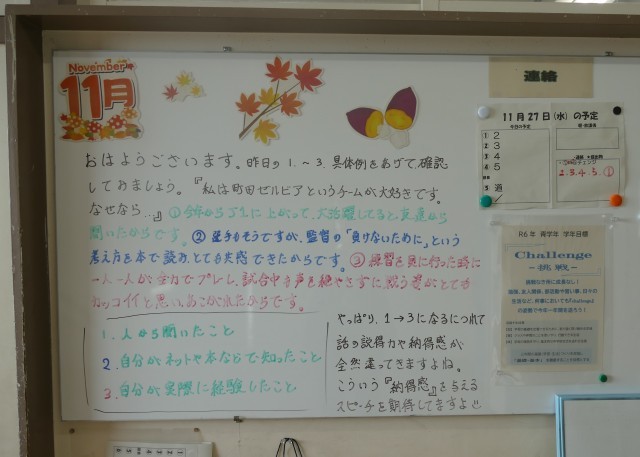 November
11月
おはようございます。昨日の1.～3.具体例をあげて確認
しておきましょう。『私は町田ゼルビアというチームが大好きです。
なぜなら…』①今年からJ1に上がって、大活躍してると友達から
聞いたからです。②選手もそうですが、監督の「負けないために」という
考え方を本で読み、とても共感できたからです。③練習を見に行った時に
一人一人が全力でプレーし、試合中も声を絶やさずに闘う姿がとても
カッコイイと思い、あこがれたからです。
1.人から聞いたこと
2.自分がネットや本などで知ったこと
3.自分が実際に経験したこと
やっぱり、1→3になるにつれて
話の説得力や納得感が
全然違ってきますよね。
こういう『納得感』を与える
スピーチを期待してますよ
連絡
11月27日(水)の予定
1 2
2 3
3 4
4 5
5 道
2.3.4.5.①
R6年 青学年 学年目標
Challenge
-挑戦-